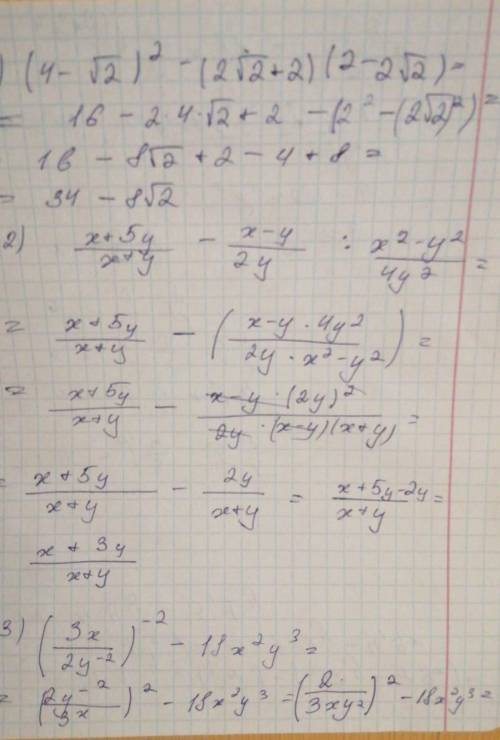 ) (4 - √2)² - (2√2 + 2)(2 - 2√2) =
= 16 - 2·4·√2 + 2 - (2² - (2√2)²) =
16 - 8√2 + 2 - 4 + 8 =
= 34 - 8√2
2) (x+5y)/(x+y) - (x-y)/(2y) : (x²-y²)/(4y²) =
= (x+5y)/(x+y) - ((x-y·4y²)/(2y·x²-y²)) =
= (x+5y)/(x+y) - (x-y·(2y)²)/(2y·(x-y)(x+y)) =
= (x+5y)/(x+y) - 2y/(x+y) = (x+5y-2y)/(x+y) =
(x+3y)/(x+y)
3) (3x/(2y⁻²))⁻² - 18x²y³ =
= (2y⁻²/(3x))² - 18x²y³ = (2/(3xy²))² - 18x²y³ =